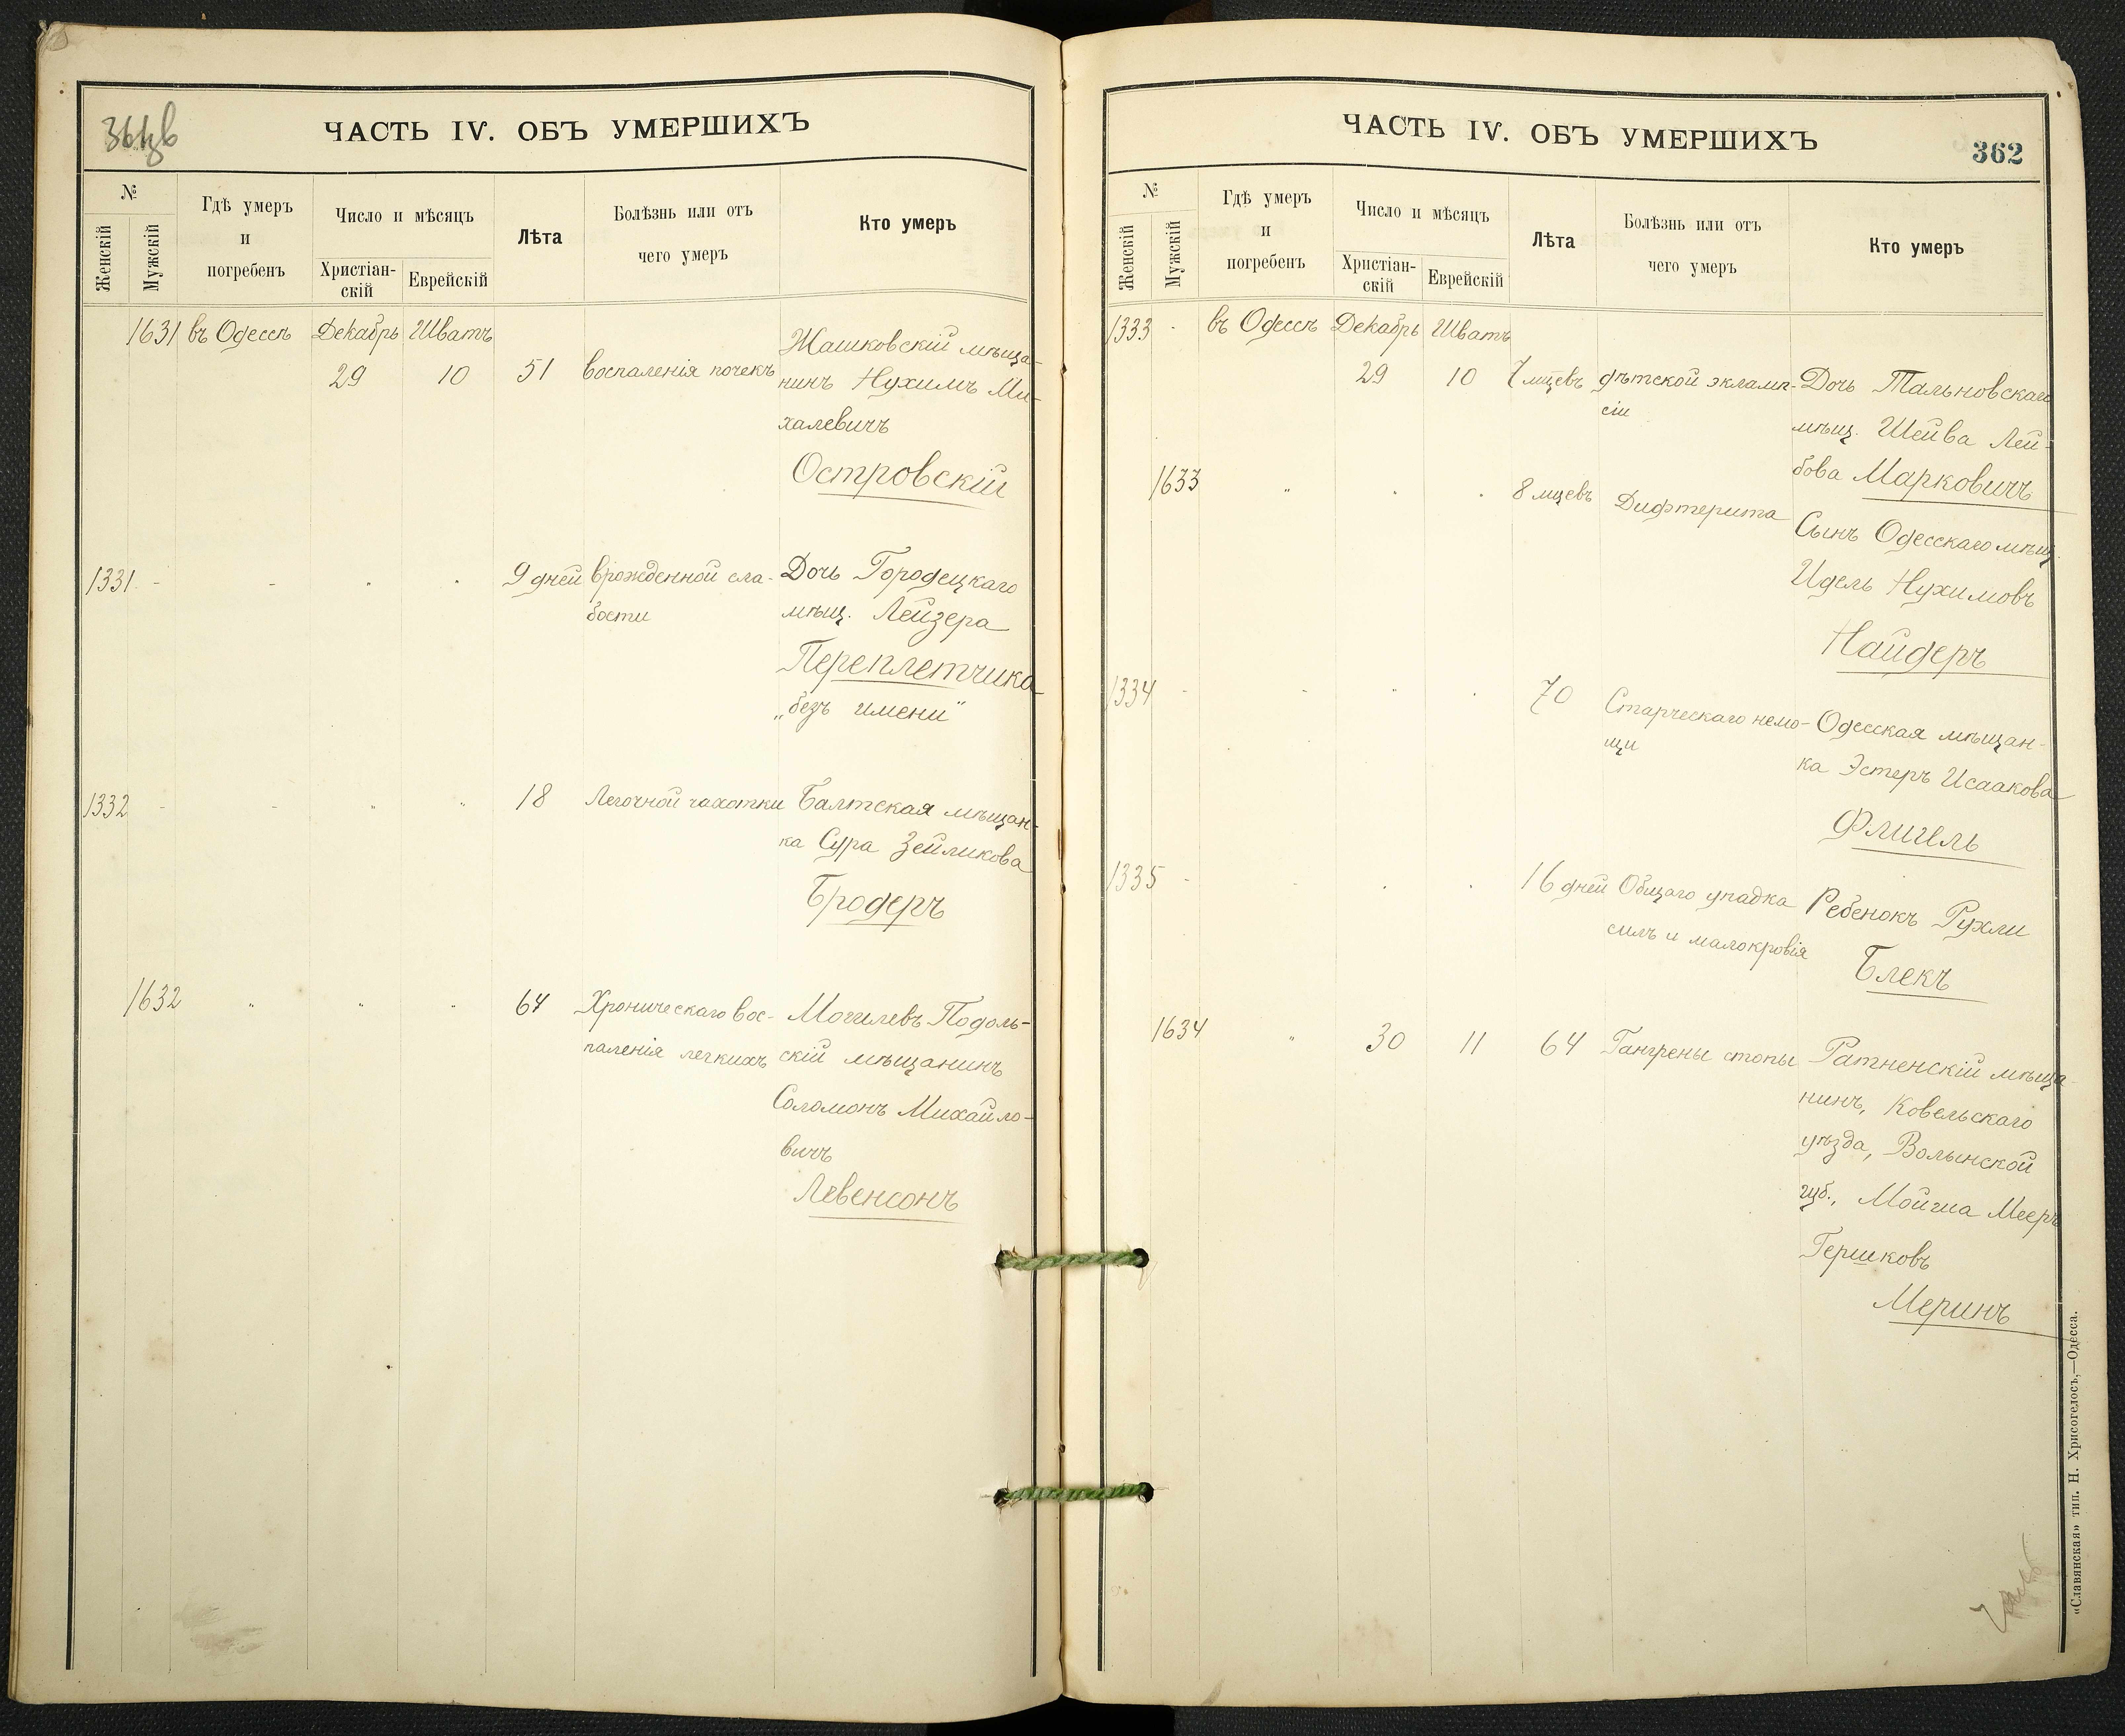 ЧАСТЬ IV. ОБЪ УМЕРШИХЪ
№
Женскій
Мужскій
Гдѣ умеръ
и
погребенъ
Число и мѣсяцъ
Христіан-
скій
Еврейскій
Лѣта
Болѣзнь или отъ
чего умеръ
Кто умеръ
1631 въ Одессѣ Декабрь Шватъ
29 10 51 воспаленія почекъ
Жашковскій мѣща-
нинъ Нухимъ Ми-
халевичъ
Островскій
1331 - - " " 9 дней врожденной сла-
бости
Дочь Городецкаго
мѣщ. Лейзера
Переплетчика
„безъ имени"
1332 - - " " 18 Легочной чахотки
Балтская мѣщан-
ка Сура Зейликова
Бродеръ
1632 " " " 64 Хроническаго вос-
паленія легкихъ
Могилевъ Подоль-
скій мѣщанинъ
Соломонъ Михайло-
вичъ
Левенсонъ
ЧАСТЬ IV. ОБЪ УМЕРШИХЪ
362
№
Женскій
Мужскій
Гдѣ умеръ
и
погребенъ
Число и мѣсяцъ
Христіан-
скій
Еврейскій
Лѣта
Болѣзнь или отъ
чего умеръ
Кто умеръ
1333 - въ Одессѣ Декабрь Шватъ
29 10 7 мцевъ дѣтской эклампп-
сіи
Дочь Тальновскаго
мѣщ. Шейва Лей-
бова Марковичъ
1633 " " " 8 мцевъ Дифтерита
Сынъ Одесскаго мѣщ.
Идель Нухимовъ
Найдеръ
1334 - - " " 70 Старческаго немо-
щи
Одесская мѣщан-
ка Эстеръ Исаакова
Флигель
1335 - - " " 16 дней Общаго упадка
силъ и малокровія
Ребенокъ Рухли
Блекъ
1634 " 30 11 64 Гангрены стопы
Ратненскій мѣща-
нинъ, Ковельскаго
уѣзда, Волынской
губ., Мойша Мееръ
Гершковъ
Меринъ
«Славянская» тип. Н. Хрисогелосъ,—Одесса.